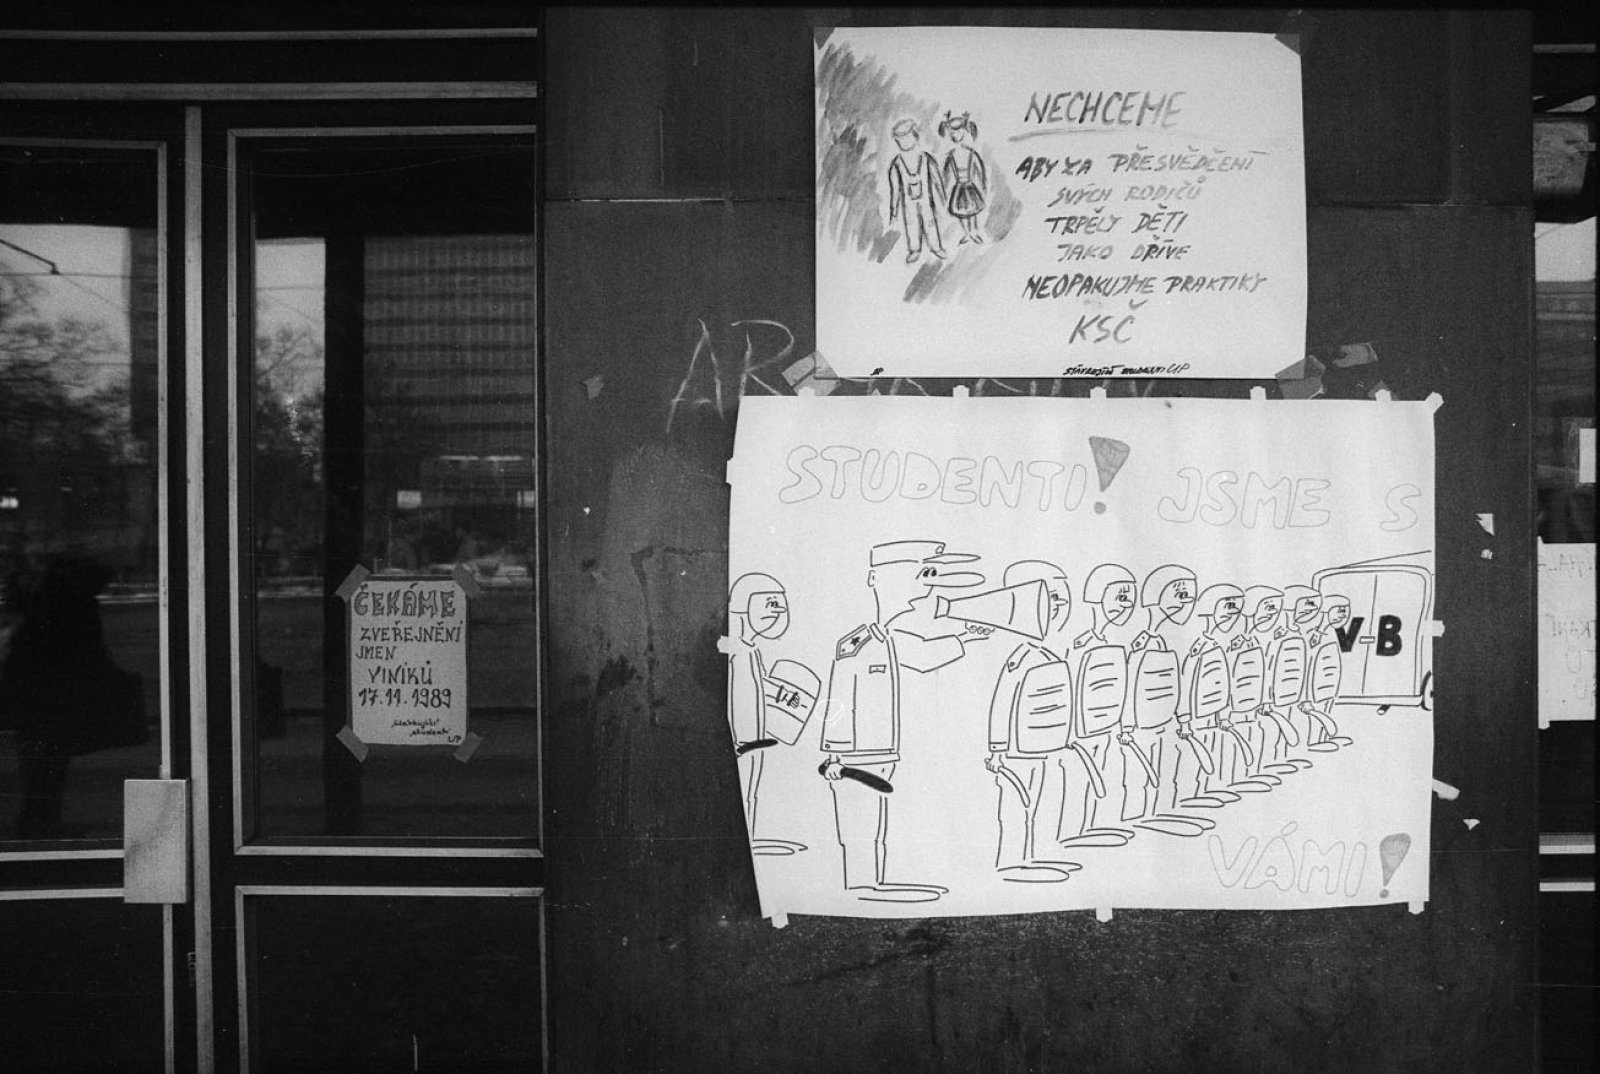 NECHCEME
ABY ZA PŘESVĚDČENÍ
SVÝCH RODIČŮ
TRPĚLY DĚTI
JAKO DŘÍVE
NEOPAKUJME PRAKTIKY
KSČ
UP
AR
STUDENTI! JSME S
V-B
VÁMI!
ČEKÁME
ZVEŘEJNĚNÍ
JMEN
VINÍKŮ
17.11.1989
stávkující
studenti
UP